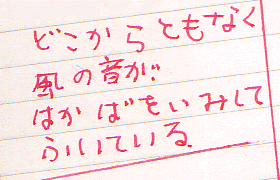 どこからともなく
風の音が
はかばをいみして
ふいている